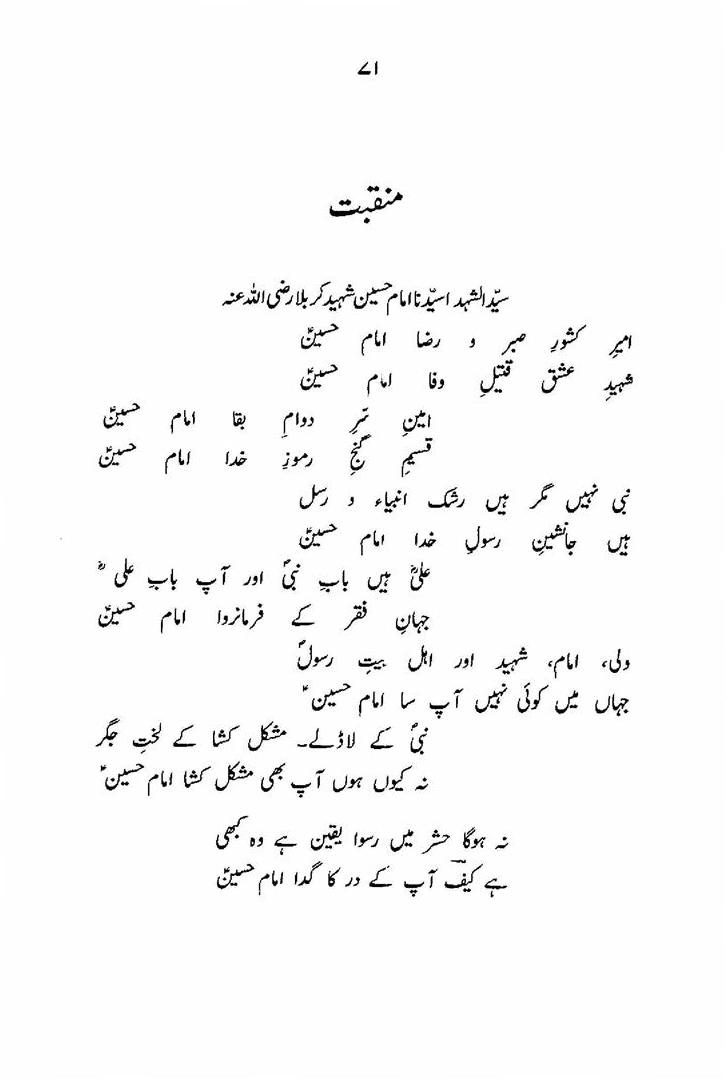 ۷۱
منقبت
سیّد الشہدا سیّدنا امام حسین شہید کربلا رضی اللہ عنہ
امیرِ کشورِ صبر و رضا امام حسینؑ
شہیدِ عشق قتیلِ وفا امام حسینؑ
امینِ سّرِ دوامِ بقا امام حسینؑ
قسیمِ گنجِ رموزِ خدا امام حسینؑ
نبی نہیں مگر ہیں رشک انبیاء و رسل
ہیں جانشینِ رسولِ خدا امام حسینؑ
علیؓ ہیں بابِ نبیؐ اور آپ بابِ علیؓ
جہانِ فقر کے فرمانروا امام حسینؑ
ولی، امام، شہید اور اہل بیتِ رسولؐ
جہاں میں کوئی نہیں آپ سا امام حسینؑ
نبیؐ کے لاڈلے۔ مشکل کشا کے لختِ جگر
نہ کیوں ہوں آپ بھی مشکل کشا امام حسینؑ
نہ ہوگا حشر میں رسوا یقین ہے وہ کبھی
ہے کیفؔ آپ کے در کا گدا امام حسینؑ